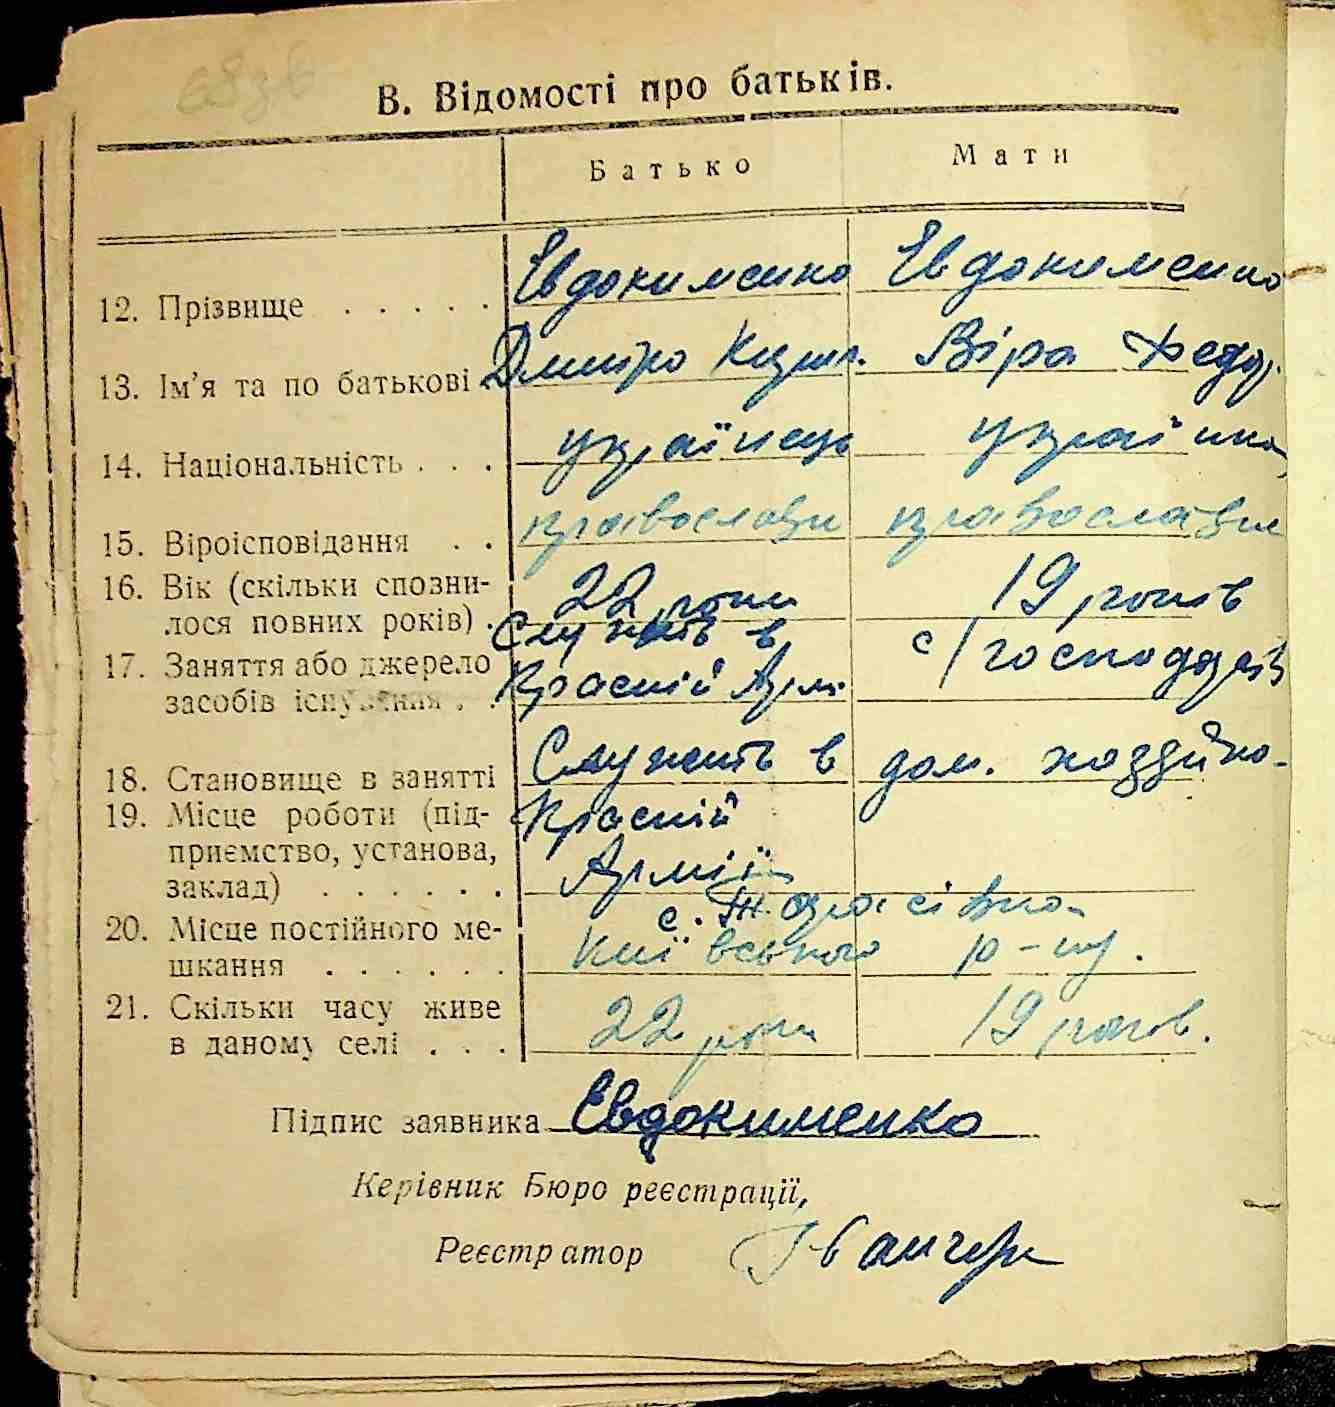 В. Відомості про батьків.
Батько Мати
12. Прізвище . . . . . Евдокименко Евдокименко
13. Ім'я та по батькові Дмитро Кузьм. Віра Федор.
14. Національність . . . українець українка
15. Віроісповідання . . православн православн
16. Вік (скільки спозни-
лося повних років) . 22 роки 19 років
17. Заняття або джерело Служить в с/господарів
засобів існування . . Красній Армі
18. Становище в занятті Служить в дом. хозяйно-
19. Місце роботи (під- Красній
приємство, установа, Армії
заклад) . . . . . .
20. Місце постійного ме- с. Тарасівка
шкання . . . . . . Київського р-ну.
21. Скільки часу живе
в даному селі . . . 22 роки 19 років.
Підпис заявника Евдокименко
Керівник Бюро реєстрації,
Реєстратор